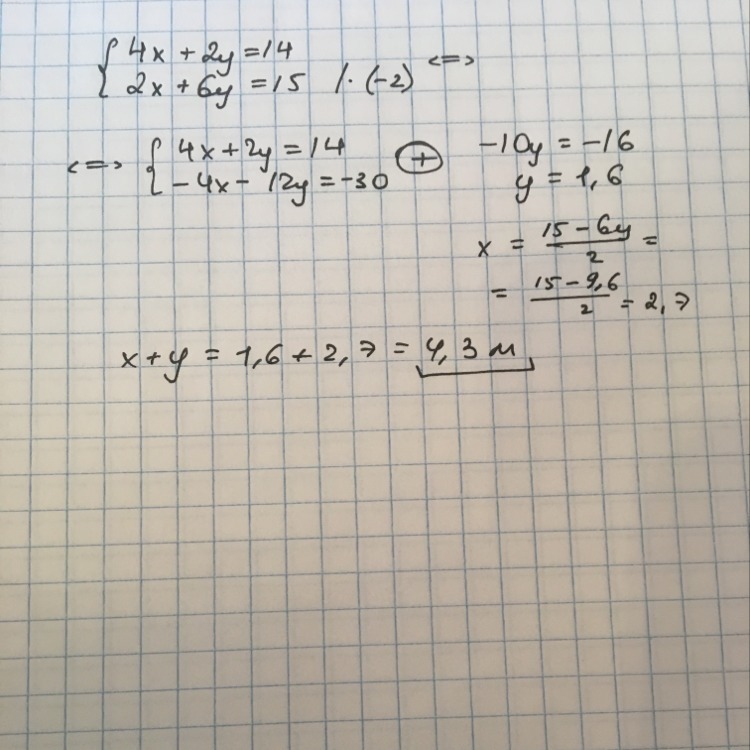 { 4x + 2y = 14
2x + 6y = 15 /· (-2) <=>
<=> { 4x + 2y = 14
-4x - 12y = -30 (+)
-10y = -16
y = 1,6
x = (15 - 6y)/2 =
= (15 - 9,6)/2 = 2,7
x + y = 1,6 + 2,7 = 4,3 м